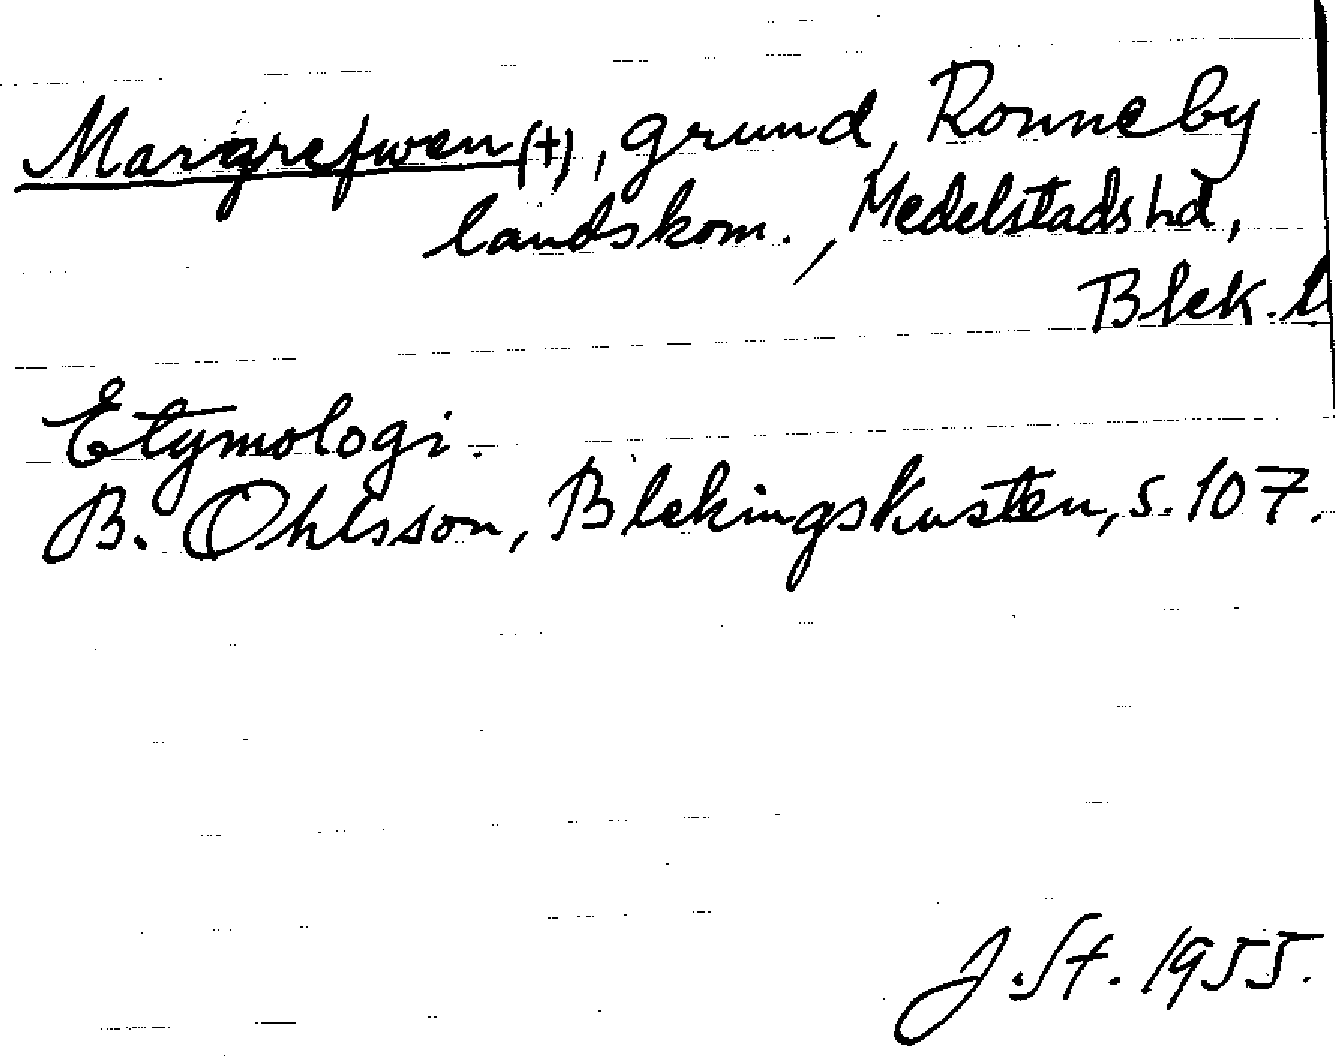 Margrefwen (+), grund, Ronneby
landskom., Medelstads hd,
Blek. l
Etymologi.
B. Ohlsson, Blekingskusten, s. 107.
J. St. 1955.